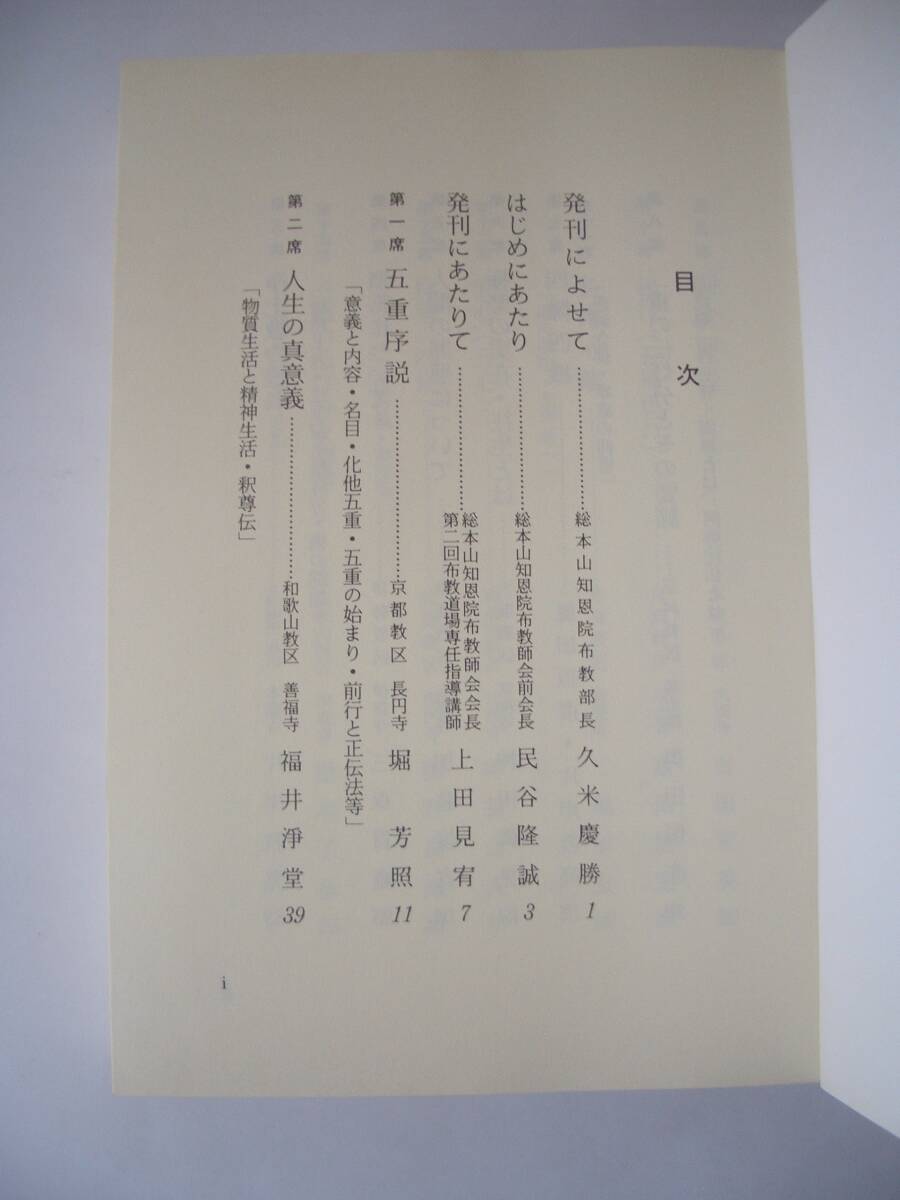 目次
発刊によせて……………………総本山知恩院布教部長 久米慶勝 1
はじめにあたり……………………総本山知恩院布教師会前会長 民谷隆誠 3
発刊にあたりて……………………総本山知恩院布教師会会長
第二回布教道場専任指導講師 上田見宥 7
第一席 五重序説……………………京都教区 長円寺 堀 芳照 11
「意義と内容・名目・化他五重・五重の始まり・前行と正伝法等」
第二席 人生の真意義……………………和歌山教区 善福寺 福井淨堂 39
「物質生活と精神生活・釈尊伝」
i